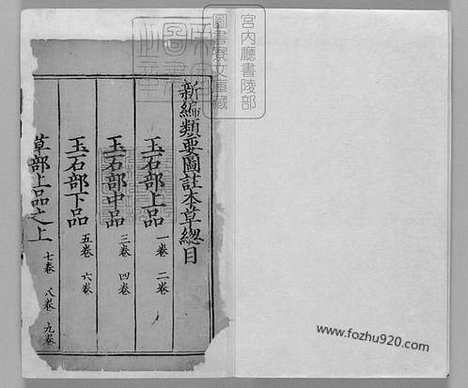 新編類要圖註本草總目
玉石部上品 一卷 二卷
玉石部中品 三卷 四卷
玉石部下品 五卷 六卷
草部上品之上 七卷 八卷 九卷
宮内廳書陵部
圖書寮文庫藏
www.fozhu920.com